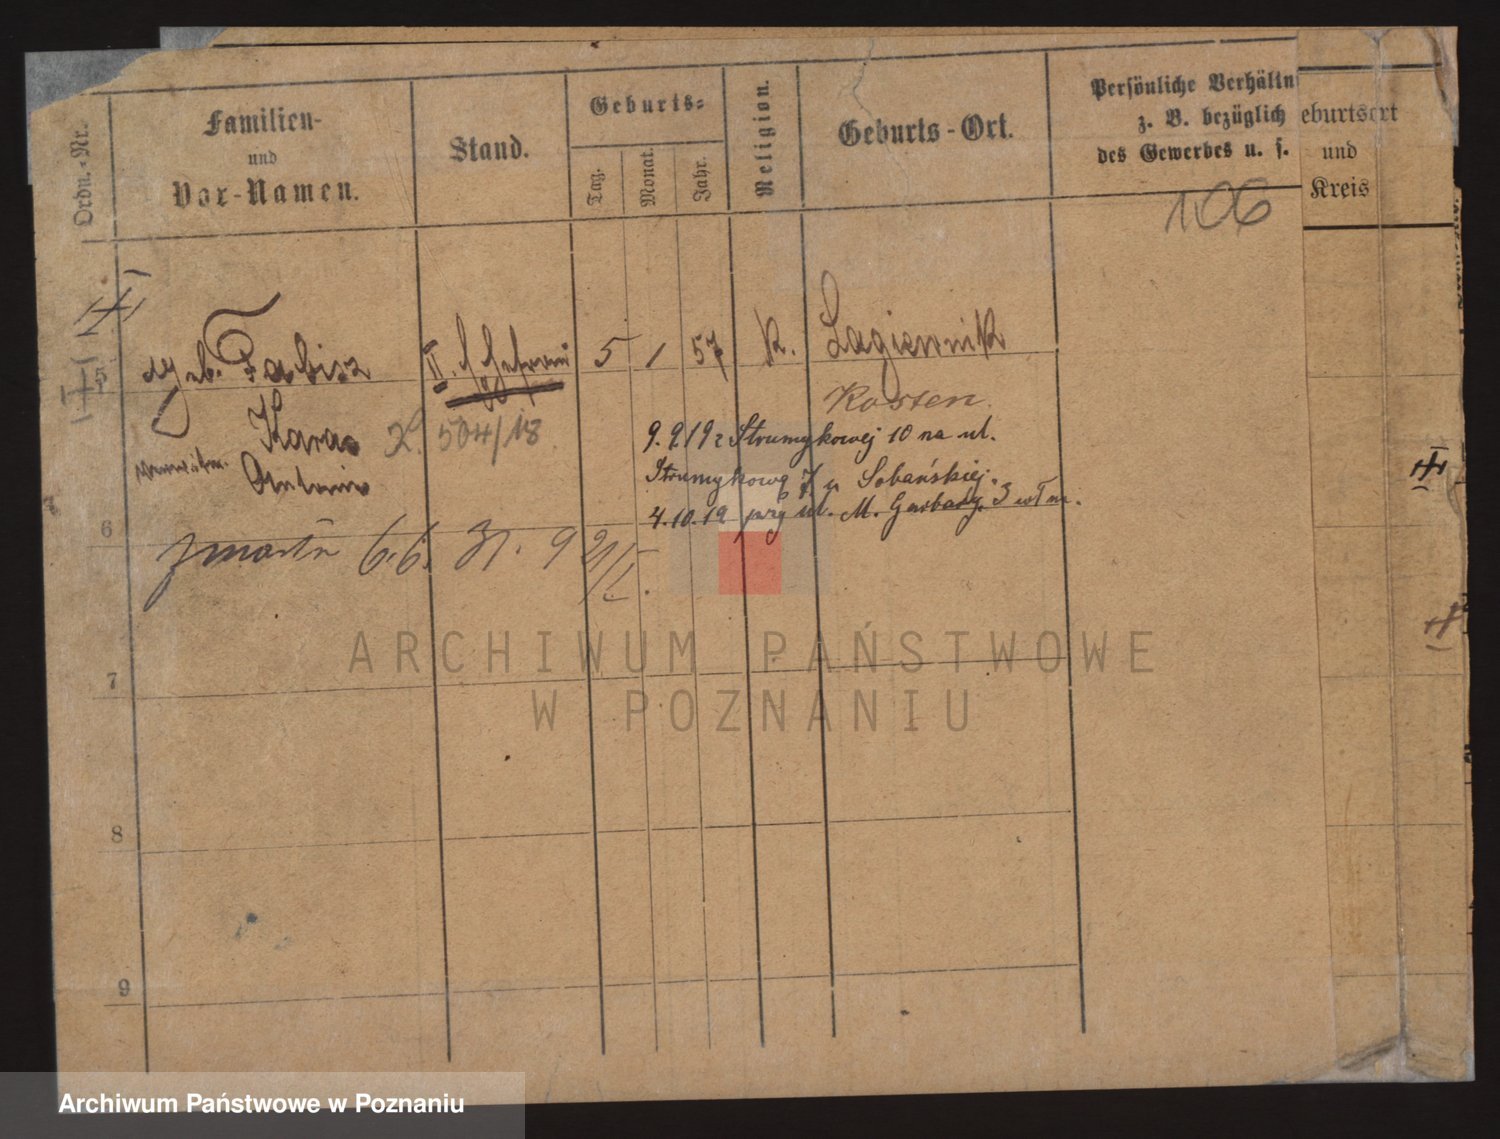 Ordn.-Nr.
Familien-
und
Vor-Namen.
Stand.
Geburts-
Tag.
Monat.
Jahr.
Religion.
Geburts-Ort.
Persönliche Verhältn
z. B. bezüglich
des Gewerbes u. s.
eburtsort
und
Kreis
106
5
geb. Fabisz
II.
5 1 57 K. Lagiewnik
Kosten
Karas
504/18
9.9.19 z Strumykowej 10 na ul.
Antonie
Strumykowa 7 u Sobańskiej.
4.10.19 przy ul. M. Garbary 3 wł.
6
zmarła 6.6. 31. 921/I.
7
8
9
ARCHIWUM PAŃSTWOWE
W POZNANIU
Archiwum Państwowe w Poznaniu